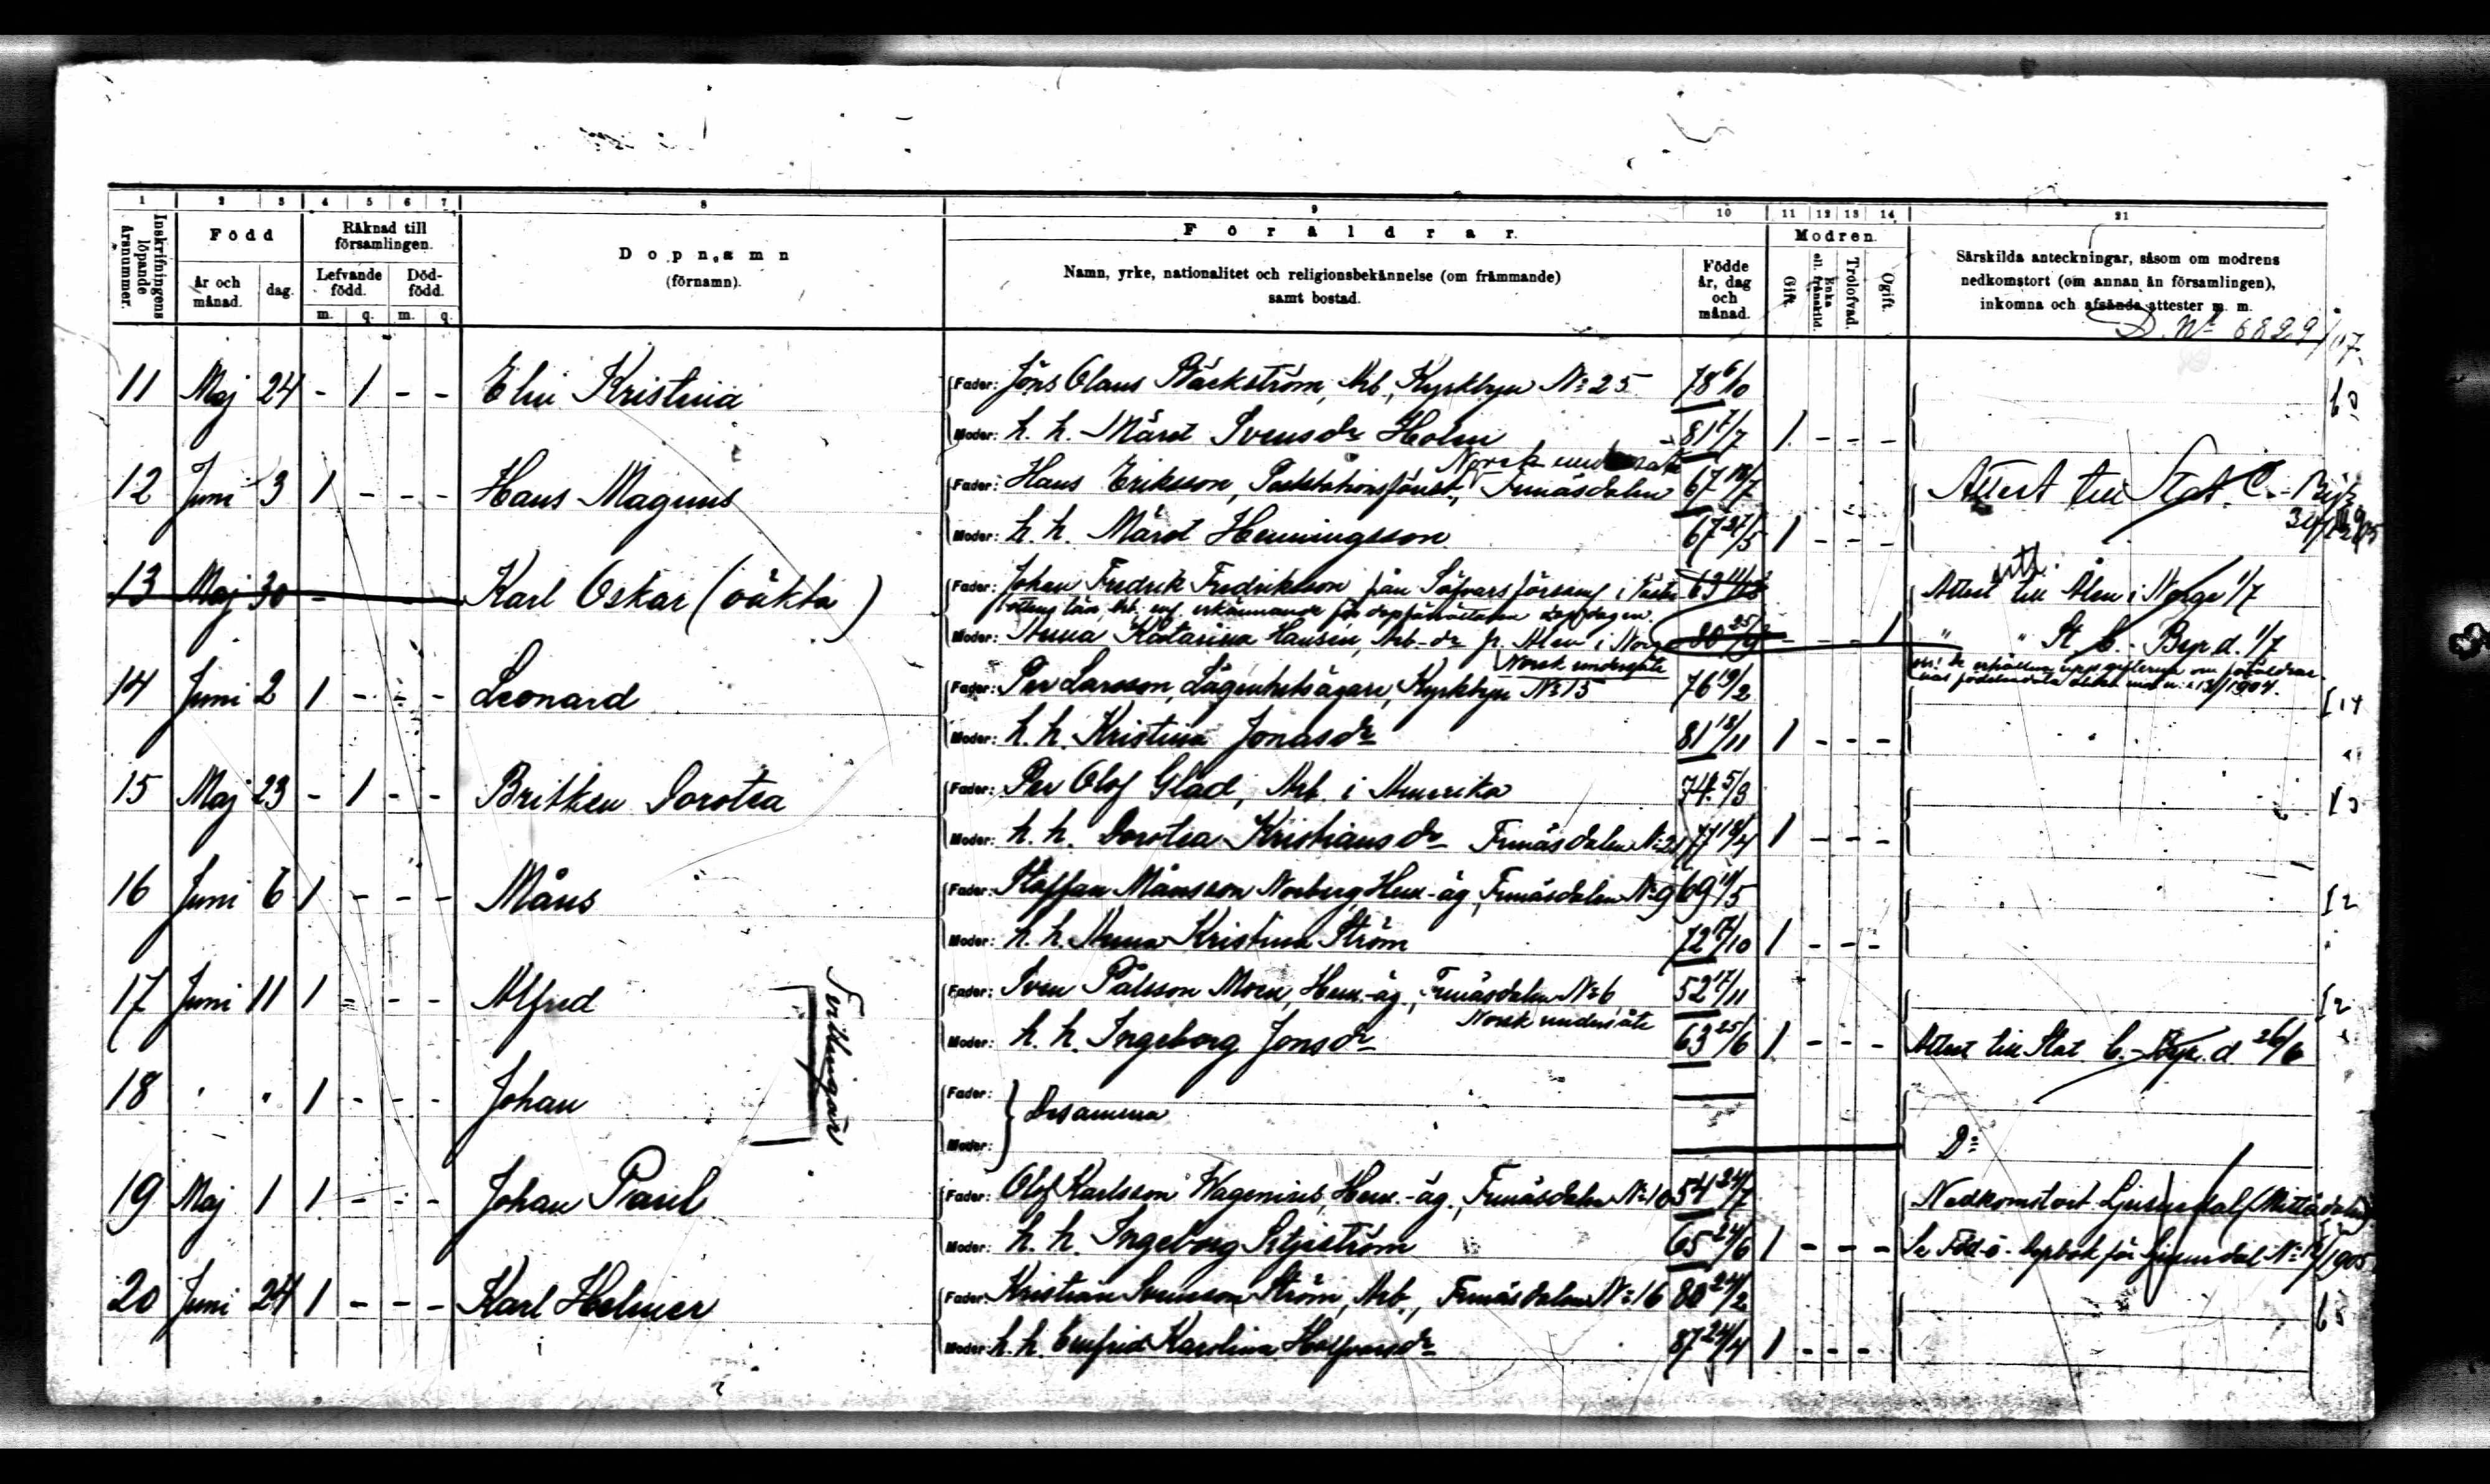 1 2 3 4 5 6 7 8 9 10 11 12 13 14 21
Inskrifningens löpande årsnummer.
Född
År och månad.
dag.
Räknad till församlingen.
Lefvande född.
Död-född.
m. q. m. q.
Dopnamn
(förnamn).
Föräldrar.
Namn, yrke, nationalitet och religionsbekännelse (om främmande)
samt bostad.
Födde
år, dag
och
månad.
Modren.
Gift.
Enka ell. frånskild.
Trolofvad.
Ogift.
Särskilda anteckningar, såsom om modrens
nedkomstort (om annan än församlingen),
inkomna och afsända attester m. m.
D. No 6829/07
11 Maj 24 - 1 - - Elin Kristina Fader: Jöns Olaus Bäckström, Arb., Kyrkbyn No 25 78 6/10
Moder: h. h. Märet Svensdr Holm 81 7/7 1 - - -
Norsk undersåte
12 Juni 3 1 - - - Hans Magnus Fader: Hans Eriksson, Funäsdalen 67 18/7 Attest till Stat. C.-Byr.
Moder: h. h. Märet Henningsson 67 27/5 1 - - -
13 Maj 30 - Karl Oskar (oäkta) Fader: Johan Fredrik Fredriksson från Säfvarsförsaml. i Väster- 63 Attest till Ålen i Norge 1/7
bottens län, Arb. enl. erkännande för dopförrättaren dopdagen.
Moder: Anna Katarina Hansen, Arb.-dr fr. Ålen i Norge 80 25/9 - - - 1 " " St. C.-Byr. d. 1/7
Norsk undersåte
14 Juni 2 1 - - - Leonard Fader: Per Larsson, Lägenhetsägare, Kyrkbyn No 15 76 19/2
Moder: h. h. Kristina Jonasdr 81 18/11 1 - - -
15 Maj 23 - 1 - - Britken Dorotea Fader: Per Olof Glad, Arb. i Amerika 74 5/3
Moder: h. h. Dorotea Kristiansdr Funäsdalen No 21 77 18/4 1 - - -
16 Juni 6 1 - - - Måns Fader: Staffan Månsson Norberg, Hem.-äg., Funäsdalen No 9 69 11/5
Moder: h. h. Anna Kristina Ström 72 17/10 1 - - -
17 Juni 11 1 - - - Alfred Tvillingar Fader: Sven Pålsson Moen, Hem.-äg., Funäsdalen No 6 52 17/11
Norsk undersåte
Moder: h. h. Ingeborg Jonsdr 63 25/6 1 - - - Attest till Stat. C.-Byr. d. 26/6
18 " " 1 - - - Johan Fader: Desamma
Moder: Do
19 Maj 1 1 - - - Johan Paul Fader: Olof Karlsson Wagenius, Hem.-äg., Funäsdalen No 10 54 24/7 Nedkomstort Ljusnedal (Mittådalen).
Moder: h. h. Ingeborg 65 24/6 1 - - - Se Född- o. Dopbok för Ljusnedal No 1905
20 Juni 24 1 - - - Karl Helmer Fader: Kristian Svensson Ström, Arb., Funäsdalen No 16 80 24/2
Moder: h. h. Enfrid Karolina Halfvarsdr 87 24/4 1 - - -